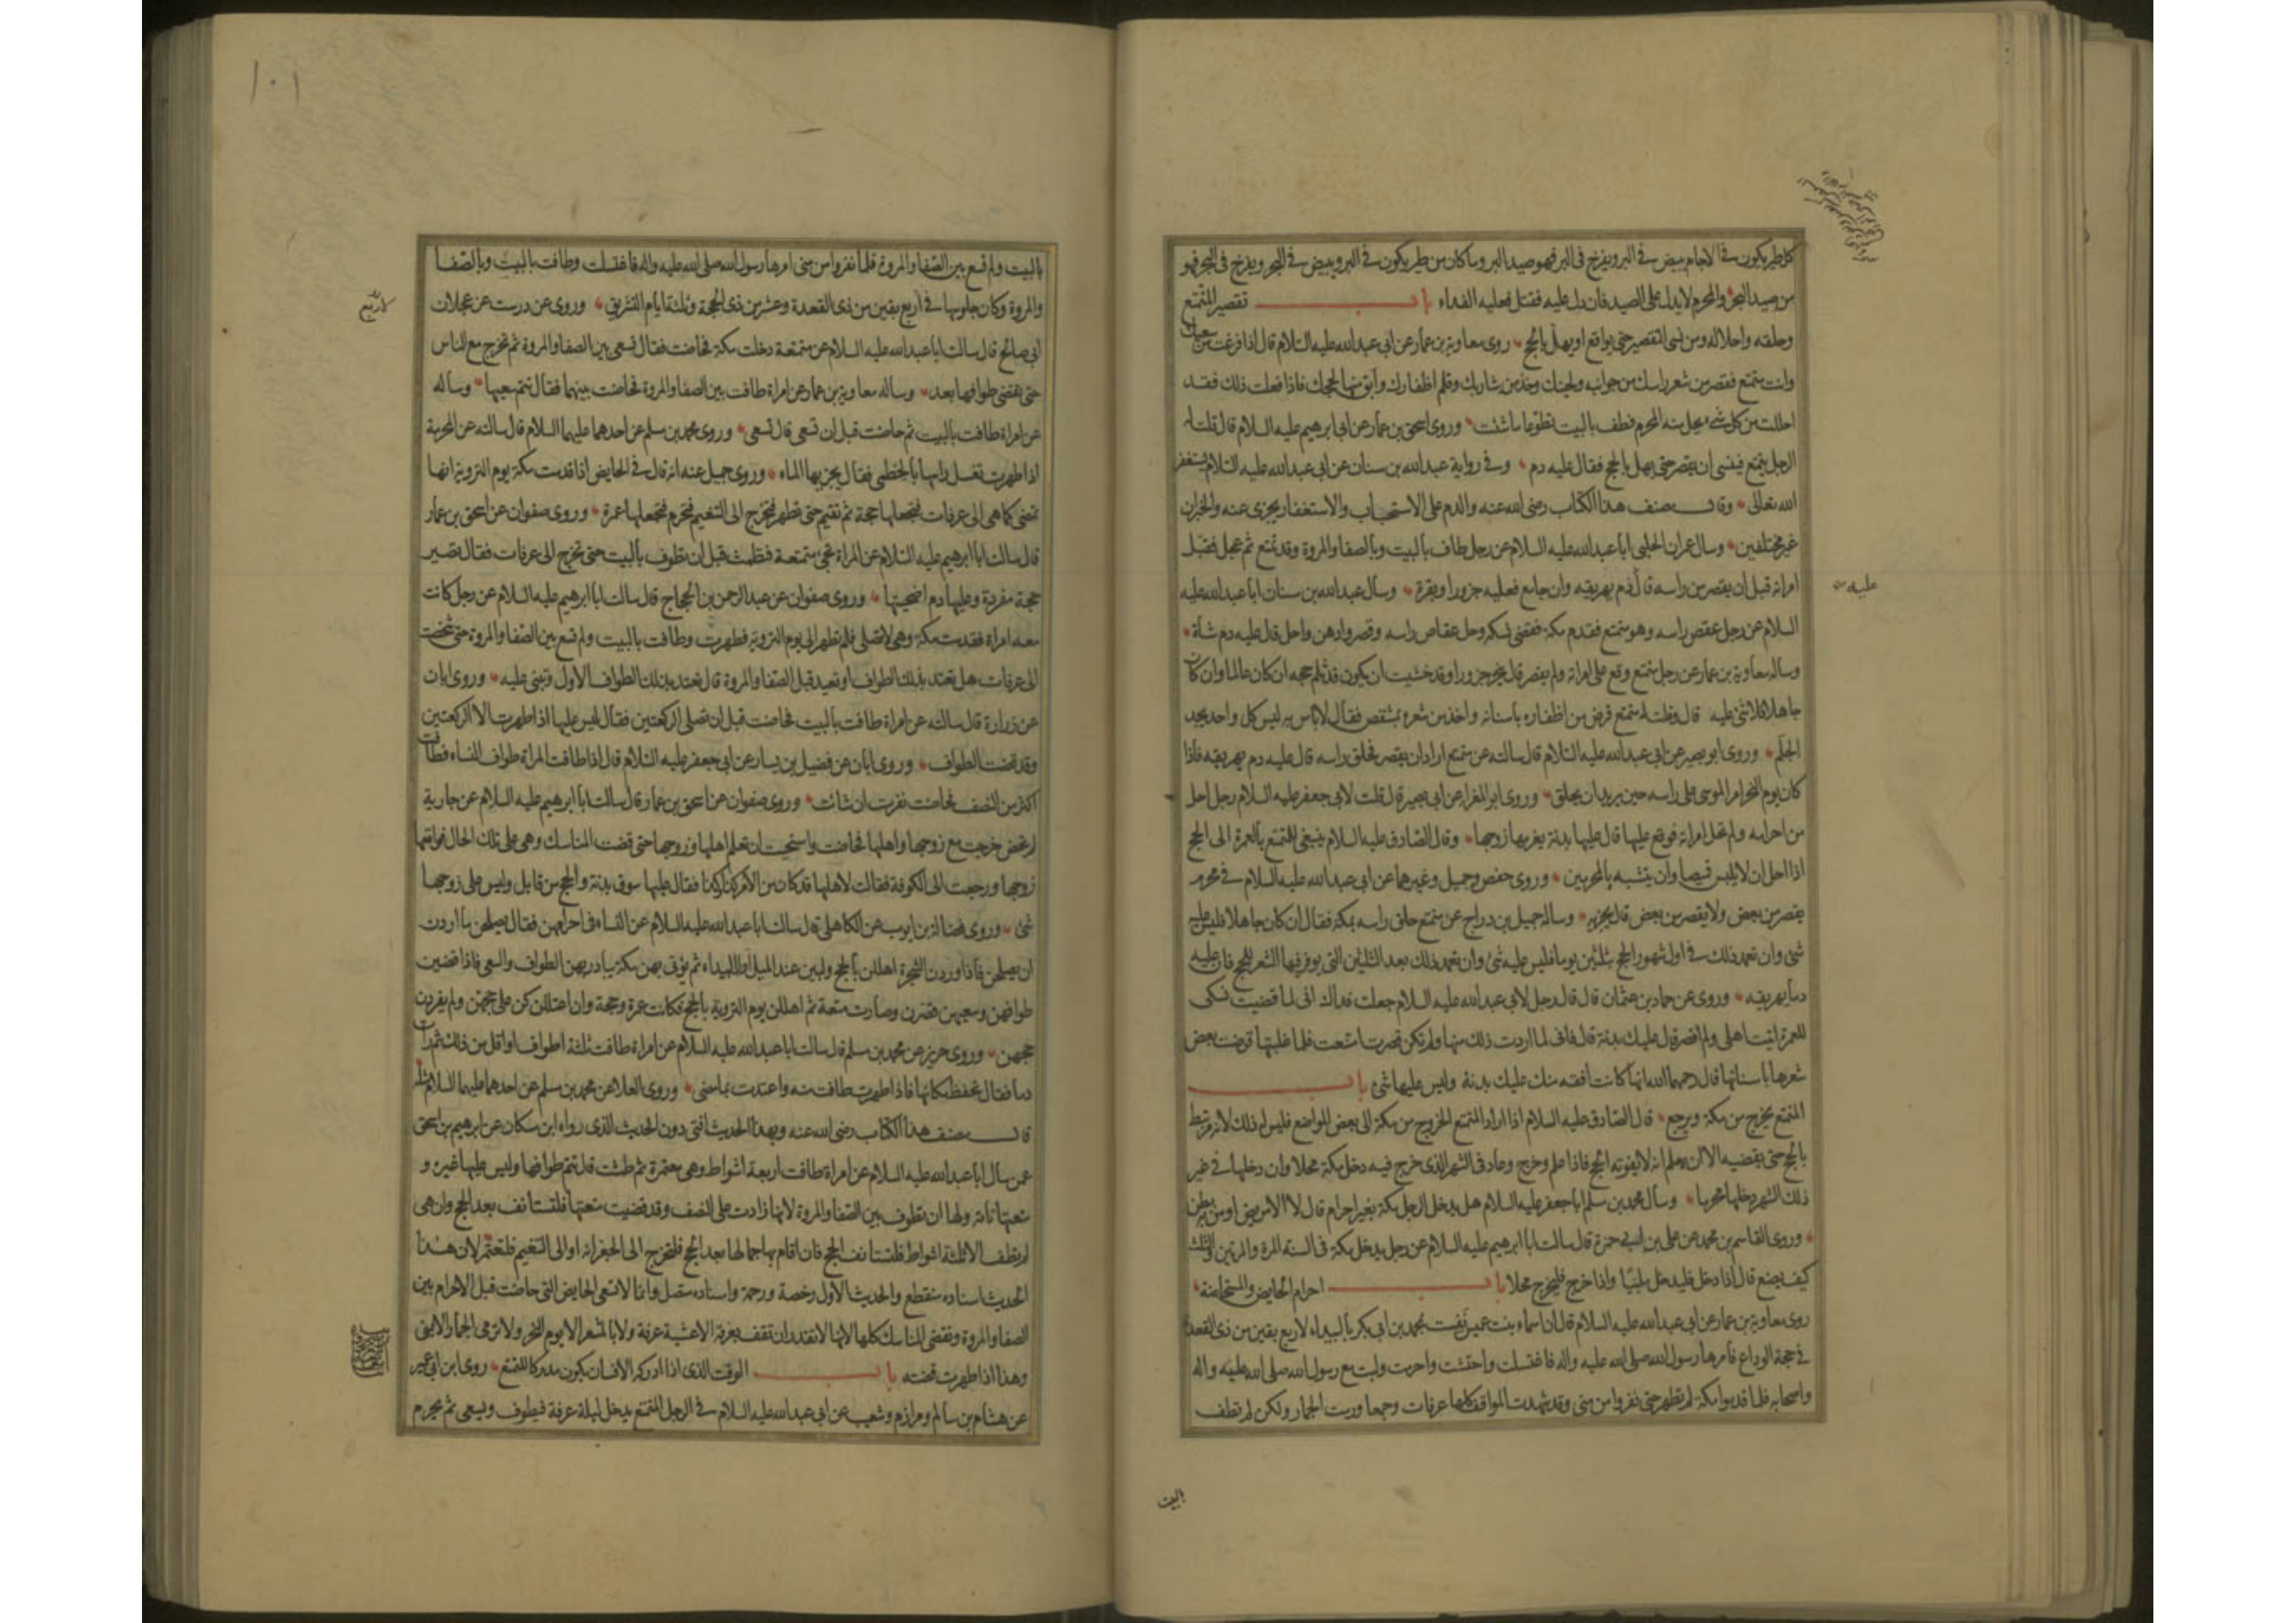 كل طير يكون في الاجام يبيض في البر ويفرخ في البر فهو صيد البر وما كان من طير يكون في البر ويبيض في البحر ويفرخ في البحر فهو
من صيد البحر والمحرم لا يدل على الصيد فان دل عليه فقتل فعليه الفداء باب تقصير المتمتع
وحلقه واحلاله ومن نسى التقصير حتى يواقع او يهل بالحج روى معاوية بن عمار عن ابي عبد الله عليه السلام قال اذا فرغت من سعيك
وانت متمتع فقصر من شعر راسك من جوانبه ولحيتك وخذ من شاربك وقلم اظفارك وابق منها لحجك فاذا فعلت ذلك فقد
احللت من كل شيء يحل منه المحرم فطف بالبيت تطوعا ما شئت وروى اسحق بن عمار عن ابي ابرهيم عليه السلام قال قلت له
الرجل يتمتع فينسى ان يقصر حتى يهل بالحج فقال عليه دم وفي رواية عبد الله بن سنان عن ابي عبد الله عليه السلام يستغفر
الله تعالى وقال مصنف هذا الكتاب رضى الله عنه والدم على الاستحباب والاستغفار يجزى عنه والخبران
غير مختلفين وسال عمران الحلبي ابا عبد الله عليه السلام عن رجل طاف بالبيت وبالصفا والمروة وقد تمتع ثم عجل فقبل
امراته قبل ان يقصر من راسه قال دم يهريقه وان جامع فعليه جزور او بقرة وسال عبد الله بن سنان ابا عبد الله عليه
عليه
السلام عن رجل عقص راسه وهو متمتع فقدم مكة فقضى نسكه وحل عقاص راسه وقصر وادهن واحل قال عليه دم شاة
وساله معاوية بن عمار عن رجل متمتع وقع على امراته ولم يقصر قال ينحر جزورا وقد خشيت ان يكون قد ثلم حجه ان كان عالما وان كان
جاهلا فلا شئ عليه قال وقلت له متمتع قرض من اظفاره باسنانه واخذ من شعره بمشقص فقال لا باس به ليس كل واحد يجد
الجلم وروى ابو بصير عن ابي عبد الله عليه السلام قال سالته عن متمتع اراد ان يقصر فحلق راسه قال عليه دم يهريقه فاذا
كان يوم النحر امر الموسى على راسه حين يريد ان يحلق وروى ابو المغرا عن ابي بصير قال قلت لابي جعفر عليه السلام رجل احل
من احرامه ولم تحل امراته فوقع عليها قال عليها بدنة يغرمها زوجها وقال الصادق عليه السلام ينبغي للمتمتع بالعمرة الى الحج
اذا احل ان لا يلبس قميصا وان يتشبه بالمحرمين وروى حفص وجميل وغيرهما عن ابي عبد الله عليه السلام في محرم
يقصر من بعض ولا يقصر من بعض قال يجزيه وساله جميل بن دراج عن متمتع حلق راسه بمكة فقال ان كان جاهلا فليس عليه
شئ وان تعمد ذلك في اول شهور الحج بثلثين يوما فليس عليه شئ وان تعمد ذلك بعد الثلثين التي يوفر فيها الشعر للحج فان عليه
دما يهريقه وروى عن حماد بن عثمان قال قال رجل لابي عبد الله عليه السلام جعلت فداك اني لما قضيت نسكى
للعمرة اتيت اهلى ولم اقصر قال عليك بدنة قال فاني لما اردت ذلك منها ولم تكن قصرت امتنعت فلما غلبتها قرضت بعض
شعرها باسنانها قال رحمها الله انها كانت افقه منك عليك بدنة وليس عليها شئ باب
المتمتع يخرج من مكة ويرجع قال الصادق عليه السلام اذا اراد المتمتع الخروج من مكة الى بعض المواضع فليس له ذلك لانه مرتبط
بالحج حتى يقضيه الا ان يعلم انه لا يفوته الحج فاذا علم وخرج وعاد في الشهر الذى خرج فيه دخل مكة محلا وان دخلها في غير
ذلك الشهر دخلها محرما وسال محمد بن مسلم ابا جعفر عليه السلام هل يدخل الرجل مكة بغير احرام قال لا الا مريض او من به بطن
وروى القاسم بن محمد عن على بن ابي حمزة قال سالت ابا ابرهيم عليه السلام عن رجل يدخل مكة في السنة المرة والمرتين والثلث
كيف يصنع قال اذا دخل فليدخل ملبيا واذا خرج فليخرج محلا باب احرام الحايض والمستحاضة
روى معاوية بن عمار عن ابي عبد الله عليه السلام قال ان اسماء بنت عميس نفست بمحمد بن ابي بكر بالبيداء لاربع بقين من ذى القعدة
في حجة الوداع فامرها رسول الله صلى الله عليه واله فاغتسلت واحتشت واحرمت ولبت مع رسول الله صلى الله عليه واله
واصحابه فلما قدموا مكة لم تطهر حتى نفروا من منى وقد شهدت المواقف كلها عرفات وجمعا ورمت الجمار ولكن لم تطف
البيت
١٠١
بالبيت ولم تسع بين الصفا والمروة فلما نفروا من منى امرها رسول الله صلى الله عليه واله فاغتسلت وطافت بالبيت وبالصفا
والمروة وكان جلوسها في اربع بقين من ذى القعدة وعشر من ذى الحجة وثلثة ايام التشريق وروى عن درست عن عجلان
لاربع
ابي صالح قال سالت ابا عبد الله عليه السلام عن متمتعة دخلت مكة فحاضت فقال تسعى بين الصفا والمروة ثم تخرج مع الناس
حتى تقضى طوافها بعد وساله معاوية بن عمار عن امراة طافت بين الصفا والمروة فحاضت بينهما فقال تتم سعيها وساله
عن امراة طافت بالبيت ثم حاضت قبل ان تسعى قال تسعى وروى محمد بن مسلم عن احدهما عليهما السلام قال سالته عن المحرمة
اذا طهرت تغسل راسها بالخطمى فقال يجزيها الماء وروى جميل عنه انه قال في الحايض اذا قدمت مكة يوم التروية انها
تمضى كما هى الى عرفات فتجعلها حجة ثم تقيم حتى تطهر فتخرج الى التنعيم فتحرم فتجعلها عمرة وروى صفوان عن اسحق بن عمار
قال سالت ابا ابرهيم عليه السلام عن المراة تجئ متمتعة فطمثت قبل ان تطوف بالبيت حتى تخرج الى عرفات فقال تصير
حجة مفردة وعليها دم اضحيتها وروى صفوان عن عبد الرحمن بن الحجاج قال سالت ابا ابرهيم عليه السلام عن رجل كانت
معه امراة فقدمت مكة وهى لا تصلى فلم تطهر الى يوم التروية فطهرت وطافت بالبيت ولم تسع بين الصفا والمروة حتى شخصت
الى عرفات هل تعتد بذلك الطواف او تعيد قبل الصفا والمروة قال تعتد بذلك الطواف الاول وتبنى عليه وروى ابان
عن زرارة قال سالته عن امراة طافت بالبيت فحاضت قبل ان تصلى الركعتين فقال ليس عليها اذا طهرت الا الركعتين
وقد قضت الطواف وروى ابان عن فضيل بن يسار عن ابي جعفر عليه السلام قال اذا طافت المراة طواف النساء فطافت
اكثر من النصف فحاضت نفرت ان شائت وروى صفوان عن اسحق بن عمار قال سالت ابا ابرهيم عليه السلام عن جارية
لم تحض خرجت مع زوجها واهلها فحاضت واستحيت ان تعلم اهلها وزوجها حتى قضت المناسك وهى على تلك الحال فواقعها
زوجها ورجعت الى الكوفة فقالت لاهلها قد كان من الامر كذا وكذا فقال عليها سوق بدنة والحج من قابل وليس على زوجها
شئ وروى فضالة بن ايوب عن الكاهلى قال سالت ابا عبد الله عليه السلام عن النساء في احرامهن فقال يصلحن ما اردن
ان يصلحن فاذا وردن الشجرة اهللن بالحج ولبين عند الميل اول البيداء ثم يؤتى بهن مكة يبادر بهن الطواف والسعى فاذا قضين
طوافهن وسعيهن قصرن وصارت متعة ثم اهللن يوم التروية بالحج فكانت عمرة وحجة وان اعتللن كن على حجهن ولم يفردن
حجهن وروى حريز عن محمد بن مسلم قال سالت ابا عبد الله عليه السلام عن امراة طافت ثلثة اطواف او اقل من ذلك ثم رات
دما فقال تحفظ مكانها فاذا طهرت طافت منه واعتدت بما مضى وروى العلا عن محمد بن مسلم عن احدهما عليهما السلام مثله
قال مصنف هذا الكتاب رضى الله عنه وبهذا الحديث افتى دون الحديث الذى رواه ابن مسكان عن ابرهيم بن اسحق
عمن سال ابا عبد الله عليه السلام عن امراة طافت اربعة اشواط وهى معتمرة ثم طمثت قال تتم طوافها وليس عليها غيره و
متعتها تامة ولها ان تطوف بين الصفا والمروة لانها زادت على النصف وقد قضيت متعتها فلتستانف بعد الحج وان هى
لم تطف الا ثلثة اشواط فلتستانف الحج فان اقام بها جمالها بعد الحج فلتخرج الى الجعرانة او الى التنعيم فلتعتمر لان هذا
الحديث اسناده منقطع والحديث الاول رخصة ورحمة واسناده متصل وانما لا تسعى الحايض التى حاضت قبل الاحرام بين
الصفا والمروة وتقضى المناسك كلها لانها لا تقدر ان تقف بعرفة الا عشية عرفة ولا بالمشعر الا يوم النحر ولا ترمى الجمار الا بمنى
وهذا اذا طهرت قضته باب الوقت الذى اذا ادركه الانسان يكون مدركا للتمتع روى ابن ابي عمير
عن هشام بن سالم ومرازم وشعيب عن ابي عبد الله عليه السلام في الرجل المتمتع يدخل ليلة عرفة فيطوف ويسعى ثم يحرم